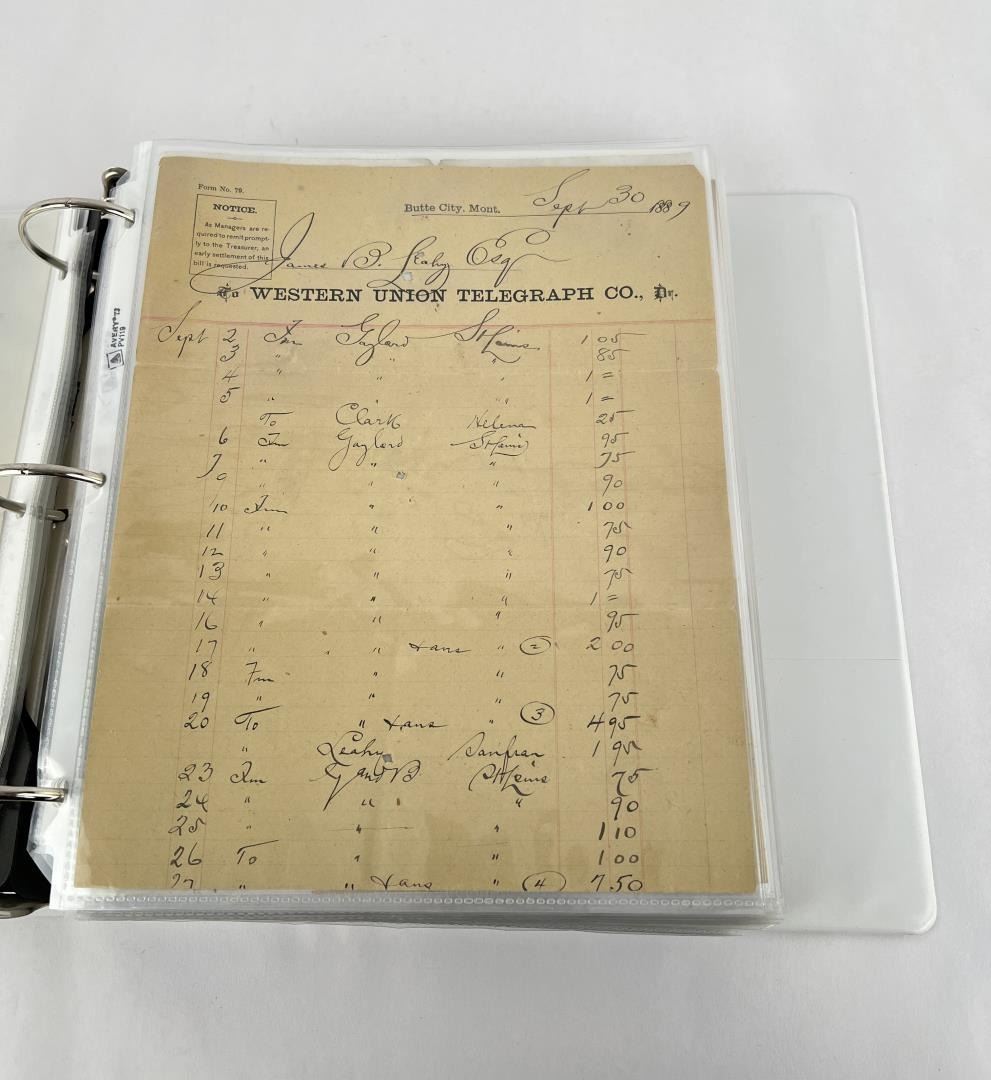 Form No. 79.
NOTICE.
As Managers are re-
quired to remit prompt-
ly to the Treasurer, an
early settlement of this
bill is requested.
Butte City, Mont. Sept 30 1889
James B. Leahy Esq
To WESTERN UNION TELEGRAPH CO., Dr.
AVERY® 72
PV119
Sept 2 Fm Gaylord St Louis 1 05
3 " " " 85
4 " " " 1 =
5 " " " 1 =
To Clark Helena 25
6 Fm Gaylord St Louis 95
7 " " " 75
" " " 90
10 Fm " " 1 00
11 " " " 75
12 " " " 90
13 " " " 75
14 " " " 1 =
16 " " " 95
17 " " " " 2 2 00
18 Fm " " 75
19 " " " 75
20 To " " 3 4 95
" Leahy Sanfran 1 95
23 Fm G and B St Louis 75
24 " " " 90
25 " " " 1 10
26 To " " 1 00
27 " " " 4 7.50